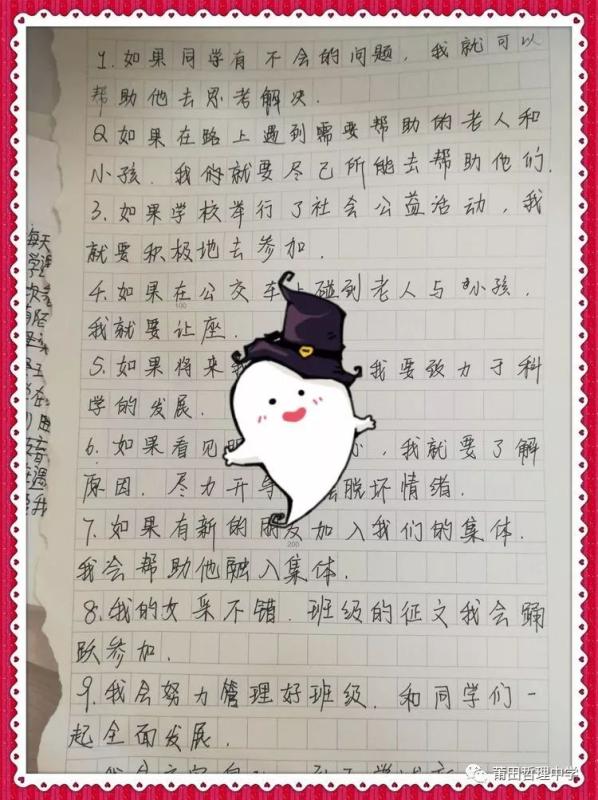 1.如果同学有不会的问题，我就可以
帮助他去思考解决.
2如果在路上遇到需要帮助的老人和
小孩.我就要尽己所能去帮助他们.
3.如果学校举行了社会公益活动，我
就要积极地去参加.
4.如果在公交车上碰到老人与小孩.
我就要让座.
5.如果将来 我要致力于科
学的发展.
6.如果看见 ，我就要了解
原因.尽力开导 脱坏情绪.
7.如果有新的朋友加入我们的集体.
我会帮助他融入集体.
8.我的文采不错.班级的征文我会踊
跃参加.
9.我会努力管理好班级.和同学们一
起全面发展.
每天
100
200
莆田哲理中学